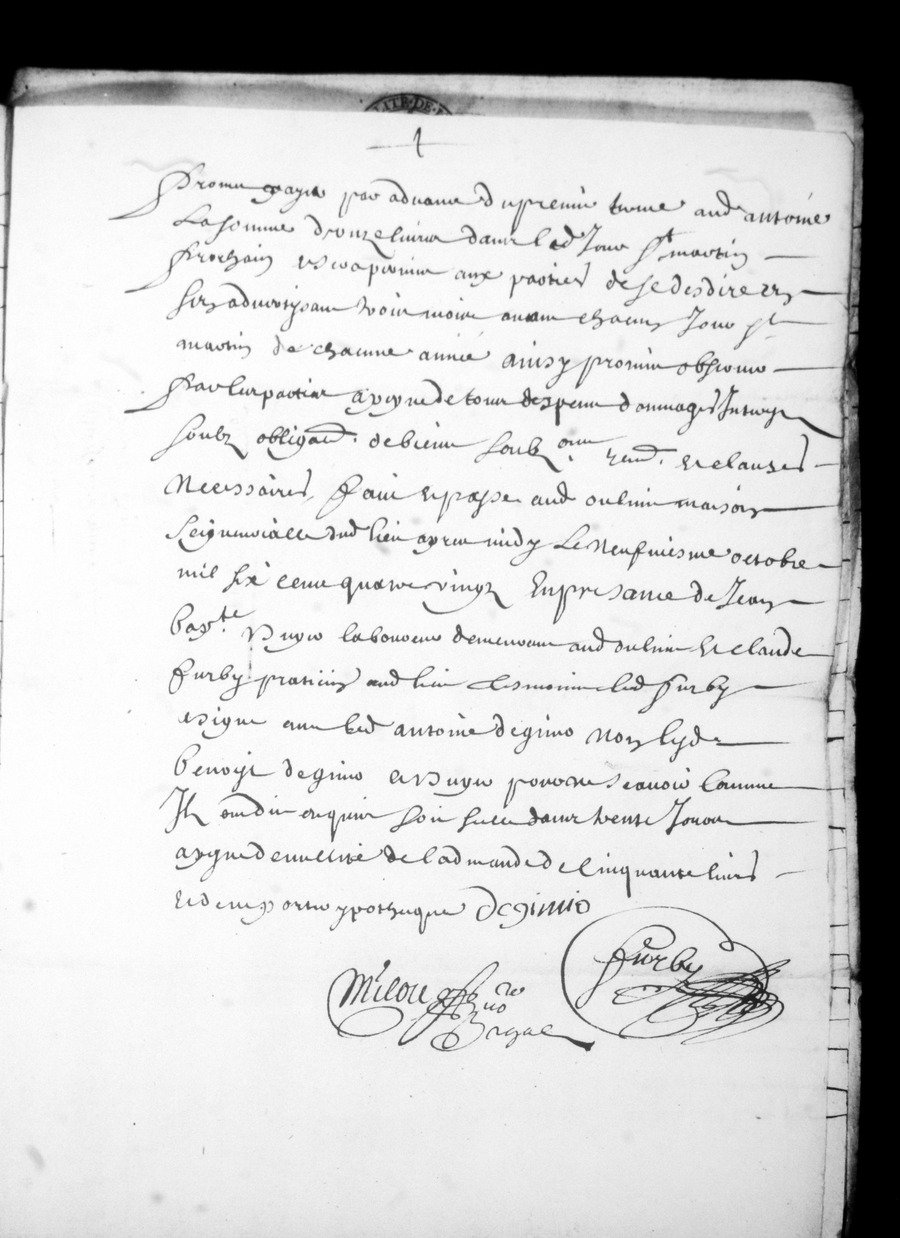 ITE DE
1
Promis payer par advance du premier terme aud antoine
La somme d'onze livres dans led Jour St martin
Prochain et sera permis aux parties de se desdire en
sen advertissant trois mois avant chacun Jour St
martin de chacune année ainsy promis observer
Par les parties a peyne de tous despens dommages Interestz
soubz obligaon. de biens soubzon. renon. et clauses
Necessaires, faict et passé aud oullins maison
Seigneurialle dud lieu apres midy Le neufviesme octobre
mil six cent quatre vingtz En presance de Jean
bapte. laboureur demeurant aud oullins et claude
furby praticien aud lieu tesmoins led furby
a signé avec led antoine degimo Non lesd
benoist degimo et pour ne sçavoir comme
Ilz ont dit enquis soit scellé dans trente Jours
a peyne de nullité de l'admande de Cinquante livres
et de ne porter ypotheque Degimio
furby
Milou
Nore
royal